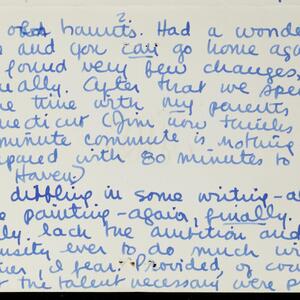 of haunts. Had a wonde
and you can go home aga
found very few changes
ually. After that we spe
e time with my parents
necticut (Jim now thinks
minute commute is nothing
pared with 80 minutes to
Haven.)
dibbling in some writing-a
e painting-again, finally.
ly lack the ambition and
nsity ever to do much wi
er, I fear. Provided, of cou
the talent necessary were p